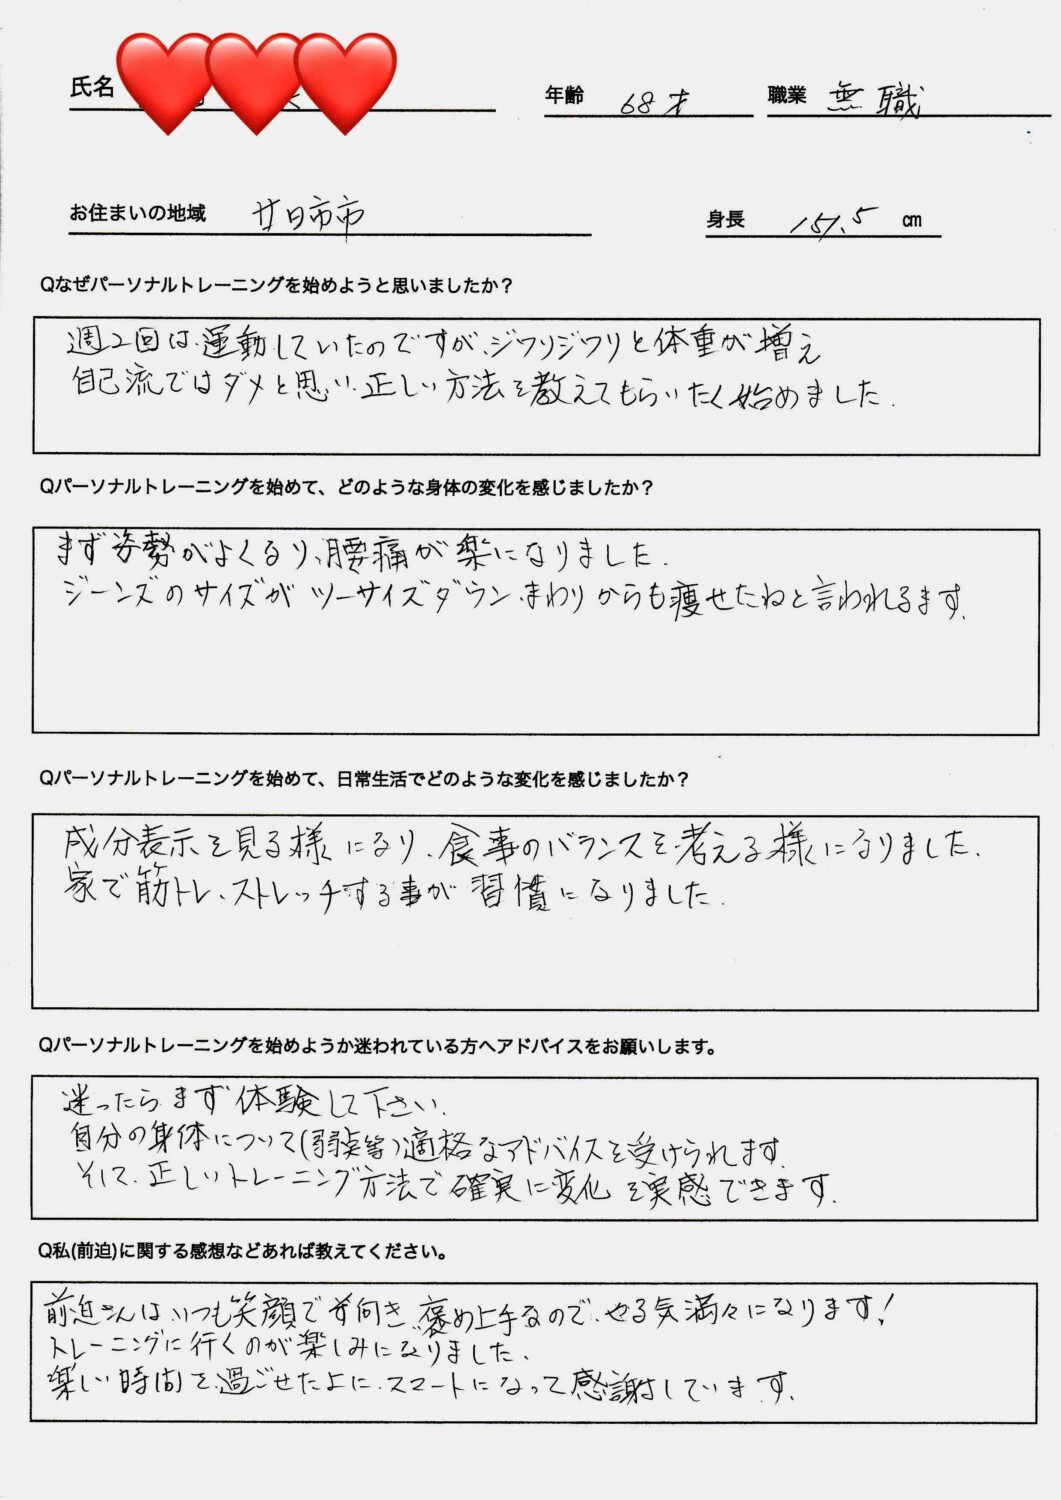 氏名
年齢 68才 職業 無職
お住まいの地域 廿日市市 身長 151.5 cm
Qなぜパーソナルトレーニングを始めようと思いましたか？
週2回は運動していたのですが、ジワリジワリと体重が増え
自己流ではダメと思い、正しい方法を教えてもらいたく始めました.
Qパーソナルトレーニングを始めて、どのような身体の変化を感じましたか？
まず姿勢がよくなり、腰痛が楽になりました.
ジーンズのサイズがツーサイズダウン、まわりからも痩せたねと言われるます.
Qパーソナルトレーニングを始めて、日常生活でどのような変化を感じましたか？
成分表示を見る様になり、食事のバランスを考える様になりました、
家で筋トレ、ストレッチする事が習慣になりました.
Qパーソナルトレーニングを始めようか迷われている方へアドバイスをお願いします。
迷ったらまず体験して下さい.
自分の身体について(弱点等)適格なアドバイスを受けられます.
そして、正しいトレーニング方法で確実に変化を実感できます.
Q私(前迫)に関する感想などあれば教えてください。
前迫さんはいつも笑顔で前向き、褒め上手なので、やる気満々になります！
トレーニングに行くのが楽しみになりました、
楽しい時間を過ごせた上に、スマートになって感謝しています.